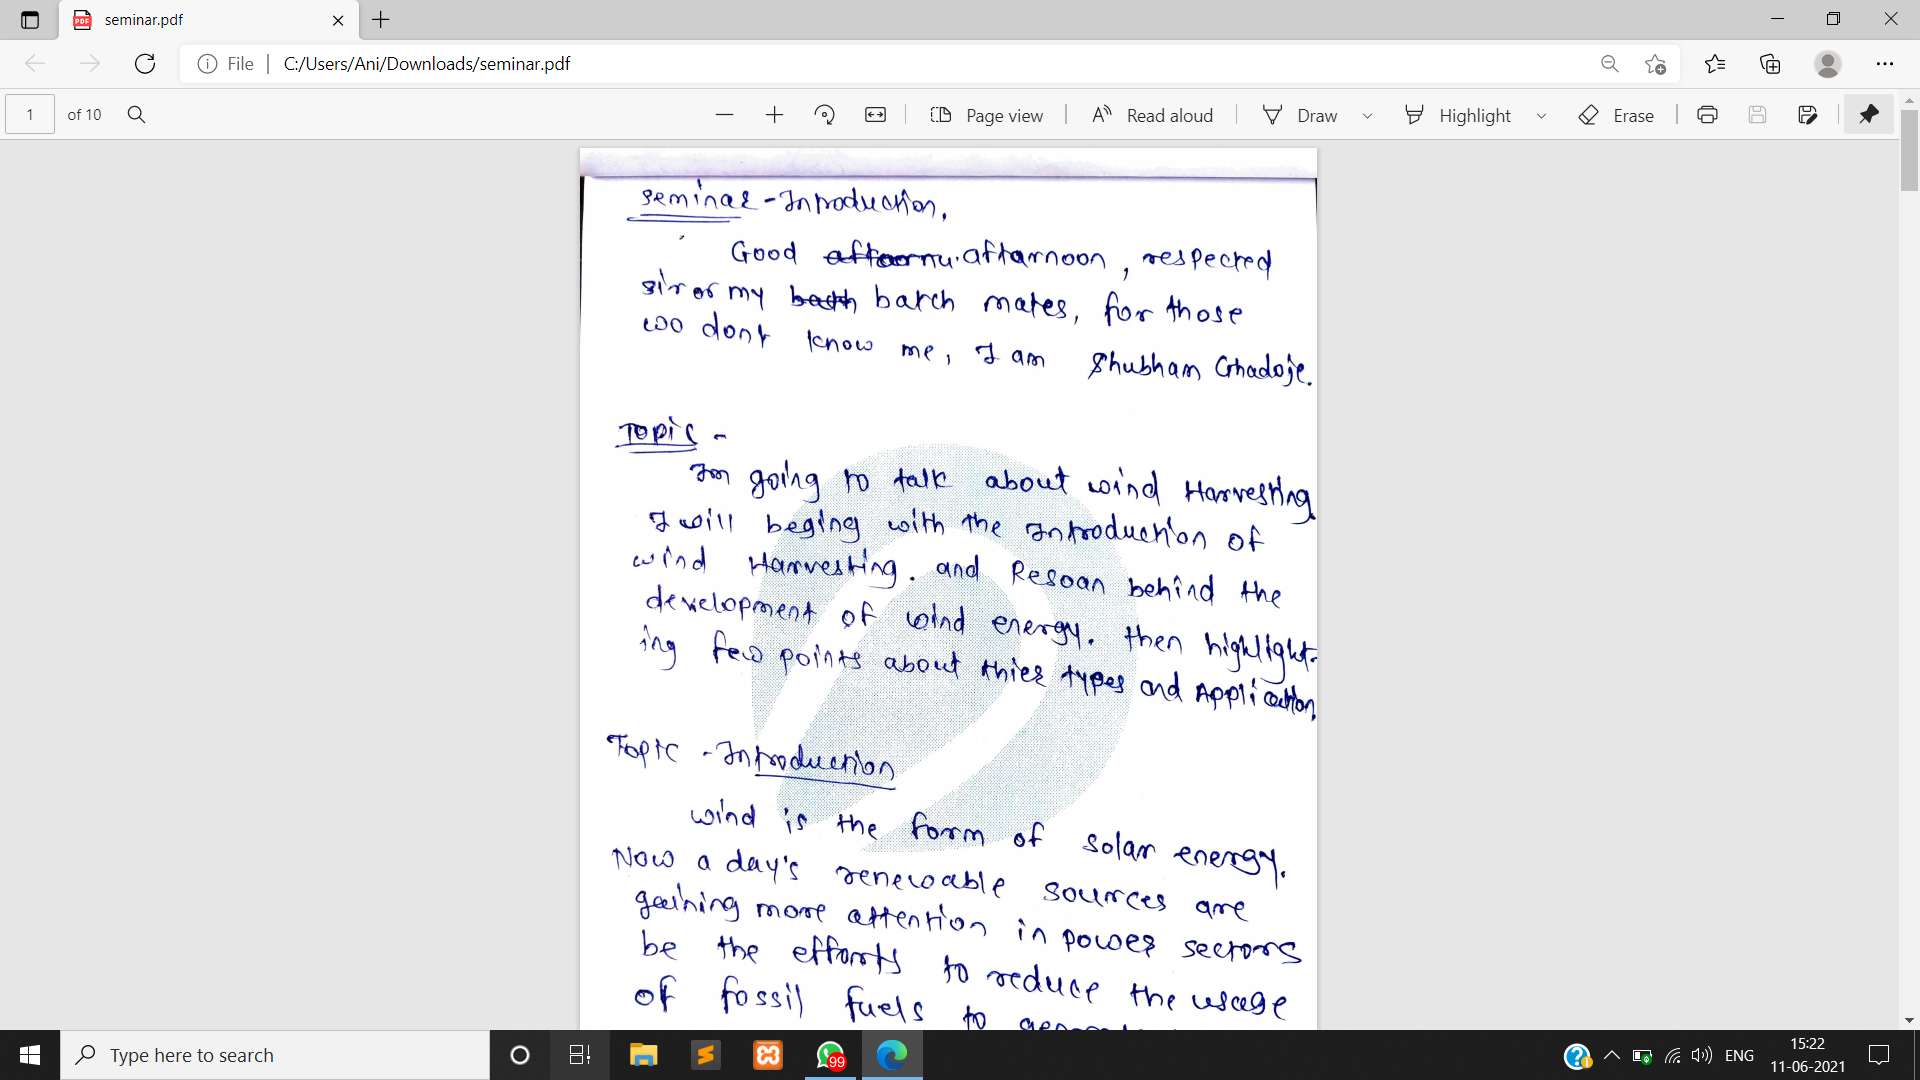 seminar.pdf
File
C:/Users/Ani/Downloads/seminar.pdf
1 of 10
Page view
Read aloud
Draw
Highlight
Erase
Seminar - Introduction.
Good afternoon, respected
sir or my batch mates, for those
woo dont know me, I am Shubham Ghadoje.
Topic -
Im going to talk about wind Harvesting
I will beging with the Introduction of
wind Harvesting. and Resoan behind the
development of wind energy. then highlight-
ing few points about thier types and Application.
Topic - Introduction
wind is the form of solar energy.
Now a day's renewable sources are
gaining more attention in power sectors
be the efforts to reduce the usage
of fossil fuels to
Type here to search
99
ENG
15:22
11-06-2021